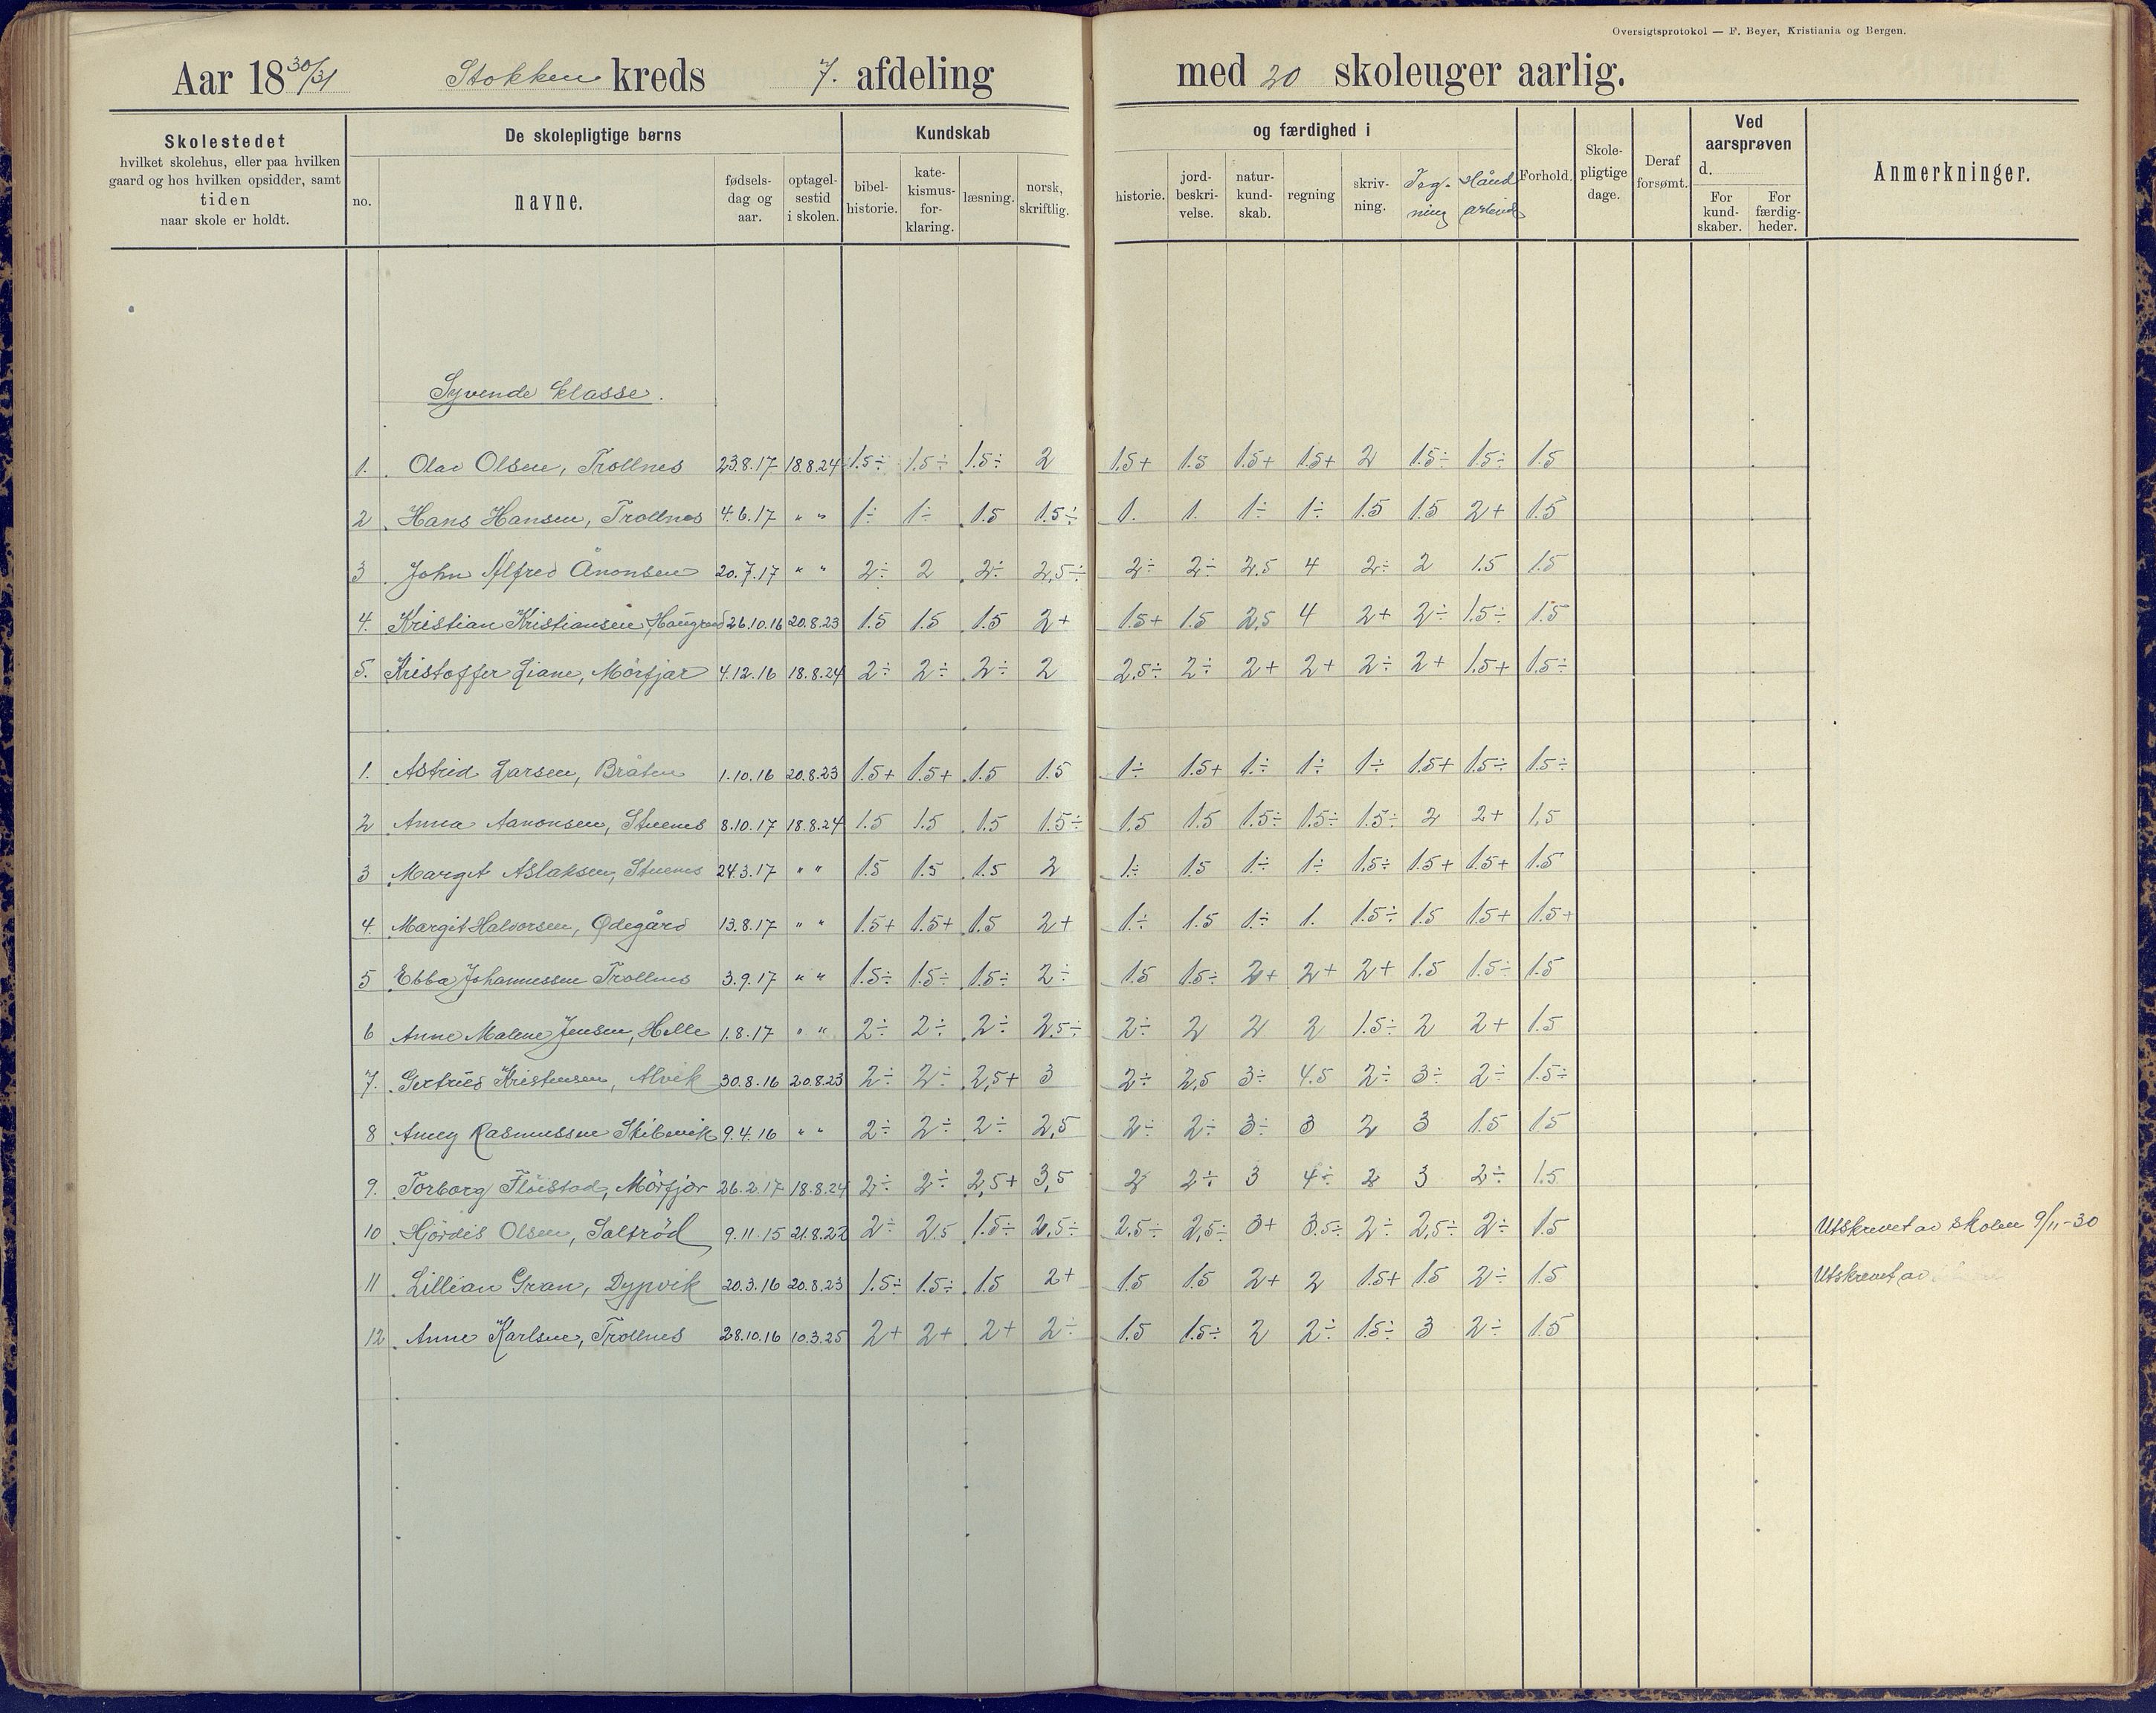 Oversigtsprotokol — F. Beyer, Kristiania og Bergen.
Aar 18 30/31 Stokken kreds 7. afdeling med 20 skoleuger aarlig.
Skolestedet
hvilket skolehus, eller paa hvilken
gaard og hos hvilken opsidder, samt
tiden
naar skole er holdt.
De skolepligtige børns
no.
navne.
fødsels-
dag og
aar.
optagel-
sestid
i skolen.
Kundskab
bibel-
historie.
kate-
kismus-
for-
klaring.
læsning.
norsk,
skriftlig.
og færdighed i
historie.
jord-
beskri-
velse.
natur-
kund-
skab.
regning
skriv-
ning.
Teg-
ning
Hånd
arbeid
Forhold.
Skole-
pligtige
dage.
Deraf
forsømt.
Ved
aarsprøven
d.
For
kund-
skaber.
For
færdig-
heder.
Anmerkninger.
Syvende klasse.
1. Olav Olsen, Trollnes 23.8.17 18.8.24 1.5÷ 1.5÷ 1.5÷ 2 1.5+ 1.5 1.5+ 1.5+ 2 1.5÷ 1.5÷ 1.5
2 Hans Hansen, Trollnes 4.6.17 " " 1÷ 1÷ 1.5 1.5÷ 1. 1. 1÷ 1÷ 1.5 1.5 2+ 1.5
3 John Alfred Ånonsen 20.7.17 " " 2÷ 2 2÷ 2,5÷ 2÷ 2÷ 2.5 4 2÷ 2 1.5 1.5
4. Kristian Kristiansen, 26.10.16 20.8.23 1.5 1.5 1.5 2+ 1.5+ 1.5 2.5 4 2+ 2÷ 1.5÷ 1.5
5. Kristoffer Liane, Mörfjær 4.12.16 18.8.24 2÷ 2÷ 2÷ 2 2.5÷ 2÷ 2+ 2+ 2÷ 2+ 1.5+ 1.5÷
1. Astrid Larsen, Bråten 1.10.16 20.8.23 1.5+ 1.5+ 1.5 1.5 1÷ 1.5+ 1÷ 1÷ 1÷ 1.5+ 1.5÷ 1.5÷
2 Anna Aanonsen, Stuenes 8.10.17 18.8.24 1.5 1.5 1.5 1.5÷ 1.5 1.5 1.5÷ 1.5÷ 1.5÷ 2 2+ 1,5
3 Margit Aslaksen, Stuenes 24.3.17 " " 1.5 1.5 1.5 2 1÷ 1.5 1÷ 1÷ 1,5÷ 1.5+ 1.5+ 1.5
4. Margit Halvorsen, Ödegård 13.8.17 " " 1.5+ 1.5+ 1.5 2+ 1÷ 1.5 1÷ 1. 1.5÷ 1.5 1.5+ 1.5+
5 Ebba Johannessen Trollnes 3.9.17 " " 1.5÷ 1.5÷ 1.5÷ 2÷ 1.5 1.5÷ 2+ 2+ 2+ 1.5 1.5÷ 1.5
6 Anne Malene Jensen, Helle 1.8.17 " " 2÷ 2÷ 2÷ 2.5÷ 2÷ 2 2 2 1.5÷ 2 2+ 1.5
7. Gertrud Kristensen, Alvik 30.8.16 20.8.23 2÷ 2÷ 2,5+ 3 2÷ 2,5 3÷ 4.5 2÷ 3÷ 2÷ 1.5÷
8 Anny Rasmussen Skibevik 9.4.16 " " 2÷ 2÷ 2÷ 2,5 2÷ 2÷ 3÷ 3 2 3 1.5 1.5
9. Torborg Flöistad, Mörfjær 26.2.17 18.8.24 2÷ 2÷ 2,5+ 3,5 2 2÷ 3 4÷ 2 3 2÷ 1.5
10 Hjördis Olsen, Saltröd 9.11.15 21.8.22 2÷ 2.5 1.5÷ 2,5÷ 2.5÷ 2,5÷ 3+ 3.5÷ 2÷ 2,5÷ 2÷ 1.5 Utskrevet av skolen 9/11-30
11 Lillian Gran, Dypvik 20.3.16 20.8.23 1.5÷ 1.5÷ 1.5 2+ 1.5 1.5 2+ 2 1.5+ 1.5 2÷ 1.5 Utskrevet av
12 Anne Karlsen, Trollnes 28.10.16 10.3.25 2+ 2+ 2+ 2÷ 1.5 1.5÷ 2 2÷ 1.5÷ 3 2÷ 1.5